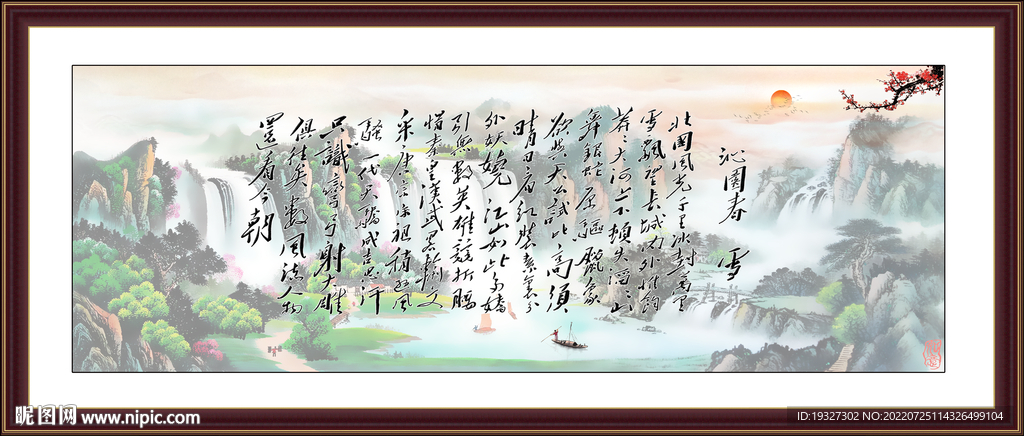 沁園春 雪
北國風光千里冰封萬里
雪飄望長城内外惟餘
莽莽大河上下頓失滔滔山
舞銀蛇原驅臘象
欲與天公試比高須
晴日看紅裝素裹分
外妖嬈 江山如此多嬌
引無數英雄競折腰
惜秦皇漢武略輸文
采唐宗宋祖稍遜風
騷一代天驕成吉思汗
只識彎弓射大雕
俱往矣數風流人物
還看今朝
昵图网 www.nipic.com
ID:19327302 NO:20220725114326499104